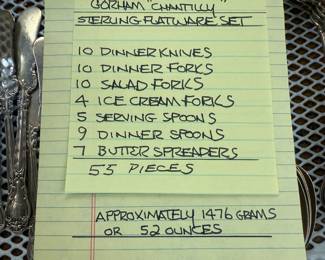 GORHAM "CHANTILLY"
STERLING FLATWARE SET
10 DINNER KNIVES
10 DINNER FORKS
10 SALAD FORKS
4 ICE CREAM FORKS
5 SERVING SPOONS
9 DINNER SPOONS
7 BUTTER SPREADERS
55 PIECES
APPROXIMATELY 1476 GRAMS
OR 52 OUNCES